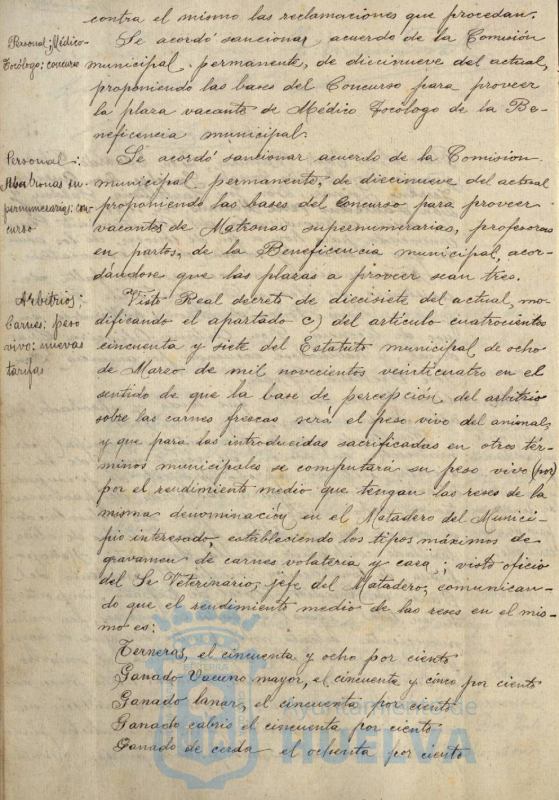 contra el mismo las reclamaciones que procedan.
Personal; Médico-
Tocólogo: concurso
Se acordó sancionar acuerdo de la Comisión
municipal permanente, de diecinueve del actual,
proponiendo las bases del Concurso para proveer
la plaza vacante de Médico Tocólogo de la Be-
neficencia municipal.
Personal:
Matronas su-
pernumerarias: con-
curso
Se acordó sancionar acuerdo de la Comision
municipal permanente, de diecinueve del actual
proponiendo las bases del Concurso para proveer
vacantes de Matronas supernumerarias, profesoras
en partos, de la Beneficencia municipal, acor-
dándose que las plazas a proveer sean tres.
Arbitrios:
Carnes: peso
vivo: nuevas
tarifas
Visto Real decreto de diecisiete del actual, mo-
dificando el apartado c) del artículo cuatrocientos
cincuenta y siete del Estatuto municipal de ocho
de Marzo de mil novecientos veinticuatro en el
sentido de que la base de percepción del arbitrio
sobre las carnes frescas será el peso vivo del animal,
y que para las introducidas sacrificadas en otros tér-
minos municipales se computará su peso vivo (por)
por el rendimiento medio que tengan las reses de la
misma denominación en el Matadero del Munici-
pio interesado, estableciendo los tipos máximos de
gravamen de carnes volateria y caza; visto oficio
del Sr Veterinario, jefe del Matadero, comunican-
do que el rendimiento medio de las reses en el mis-
mo es:
Terneras, el cincuenta y ocho por ciento
Ganado Vacuno mayor, el cincuenta y cinco por ciento
Ganado lanar, el cincuenta por ciento
Ganado cabrio el cincuenta por ciento
Ganado de cerda el ochenta por ciento
Ayuntamiento de
HUELVA